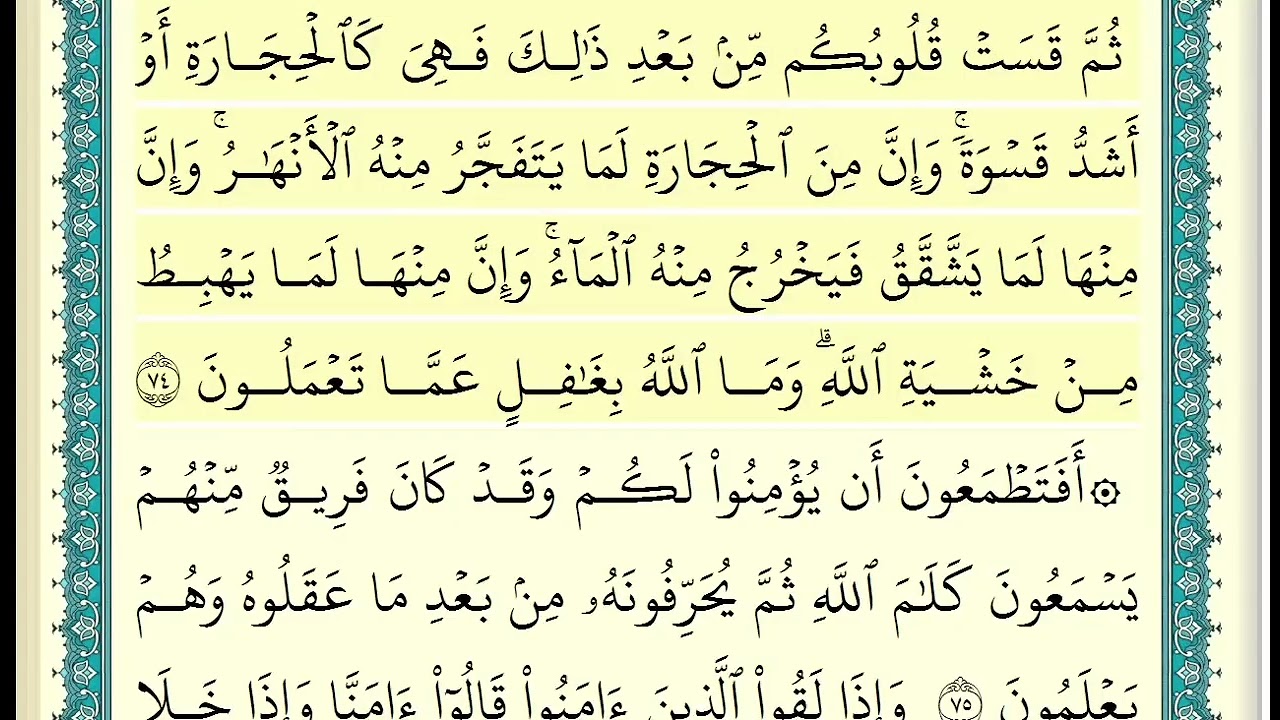 ثُمَّ قَسَتۡ قُلُوبُكُم مِّنۢ بَعۡدِ ذَٰلِكَ فَهِيَ كَٱلۡحِجَارَةِ أَوۡ
أَشَدُّ قَسۡوَةٗۚ وَإِنَّ مِنَ ٱلۡحِجَارَةِ لَمَا يَتَفَجَّرُ مِنۡهُ ٱلۡأَنۡهَٰرُۚ وَإِنَّ
مِنۡهَا لَمَا يَشَّقَّقُ فَيَخۡرُجُ مِنۡهُ ٱلۡمَآءُۚ وَإِنَّ مِنۡهَا لَمَا يَهۡبِطُ
مِنۡ خَشۡيَةِ ٱللَّهِۗ وَمَا ٱللَّهُ بِغَٰفِلٍ عَمَّا تَعۡمَلُونَ ٧٤
۞ أَفَتَطۡمَعُونَ أَن يُؤۡمِنُواْ لَكُمۡ وَقَدۡ كَانَ فَرِيقٞ مِّنۡهُمۡ
يَسۡمَعُونَ كَلَٰمَ ٱللَّهِ ثُمَّ يُحَرِّفُونَهُۥ مِنۢ بَعۡدِ مَا عَقَلُوهُ وَهُمۡ
يَعۡلَمُونَ ٧٥ وَإِذَا لَقُواْ ٱلَّذِينَ ءَامَنُواْ قَالُوٓاْ ءَامَنَّا وَإِذَا خَلَا